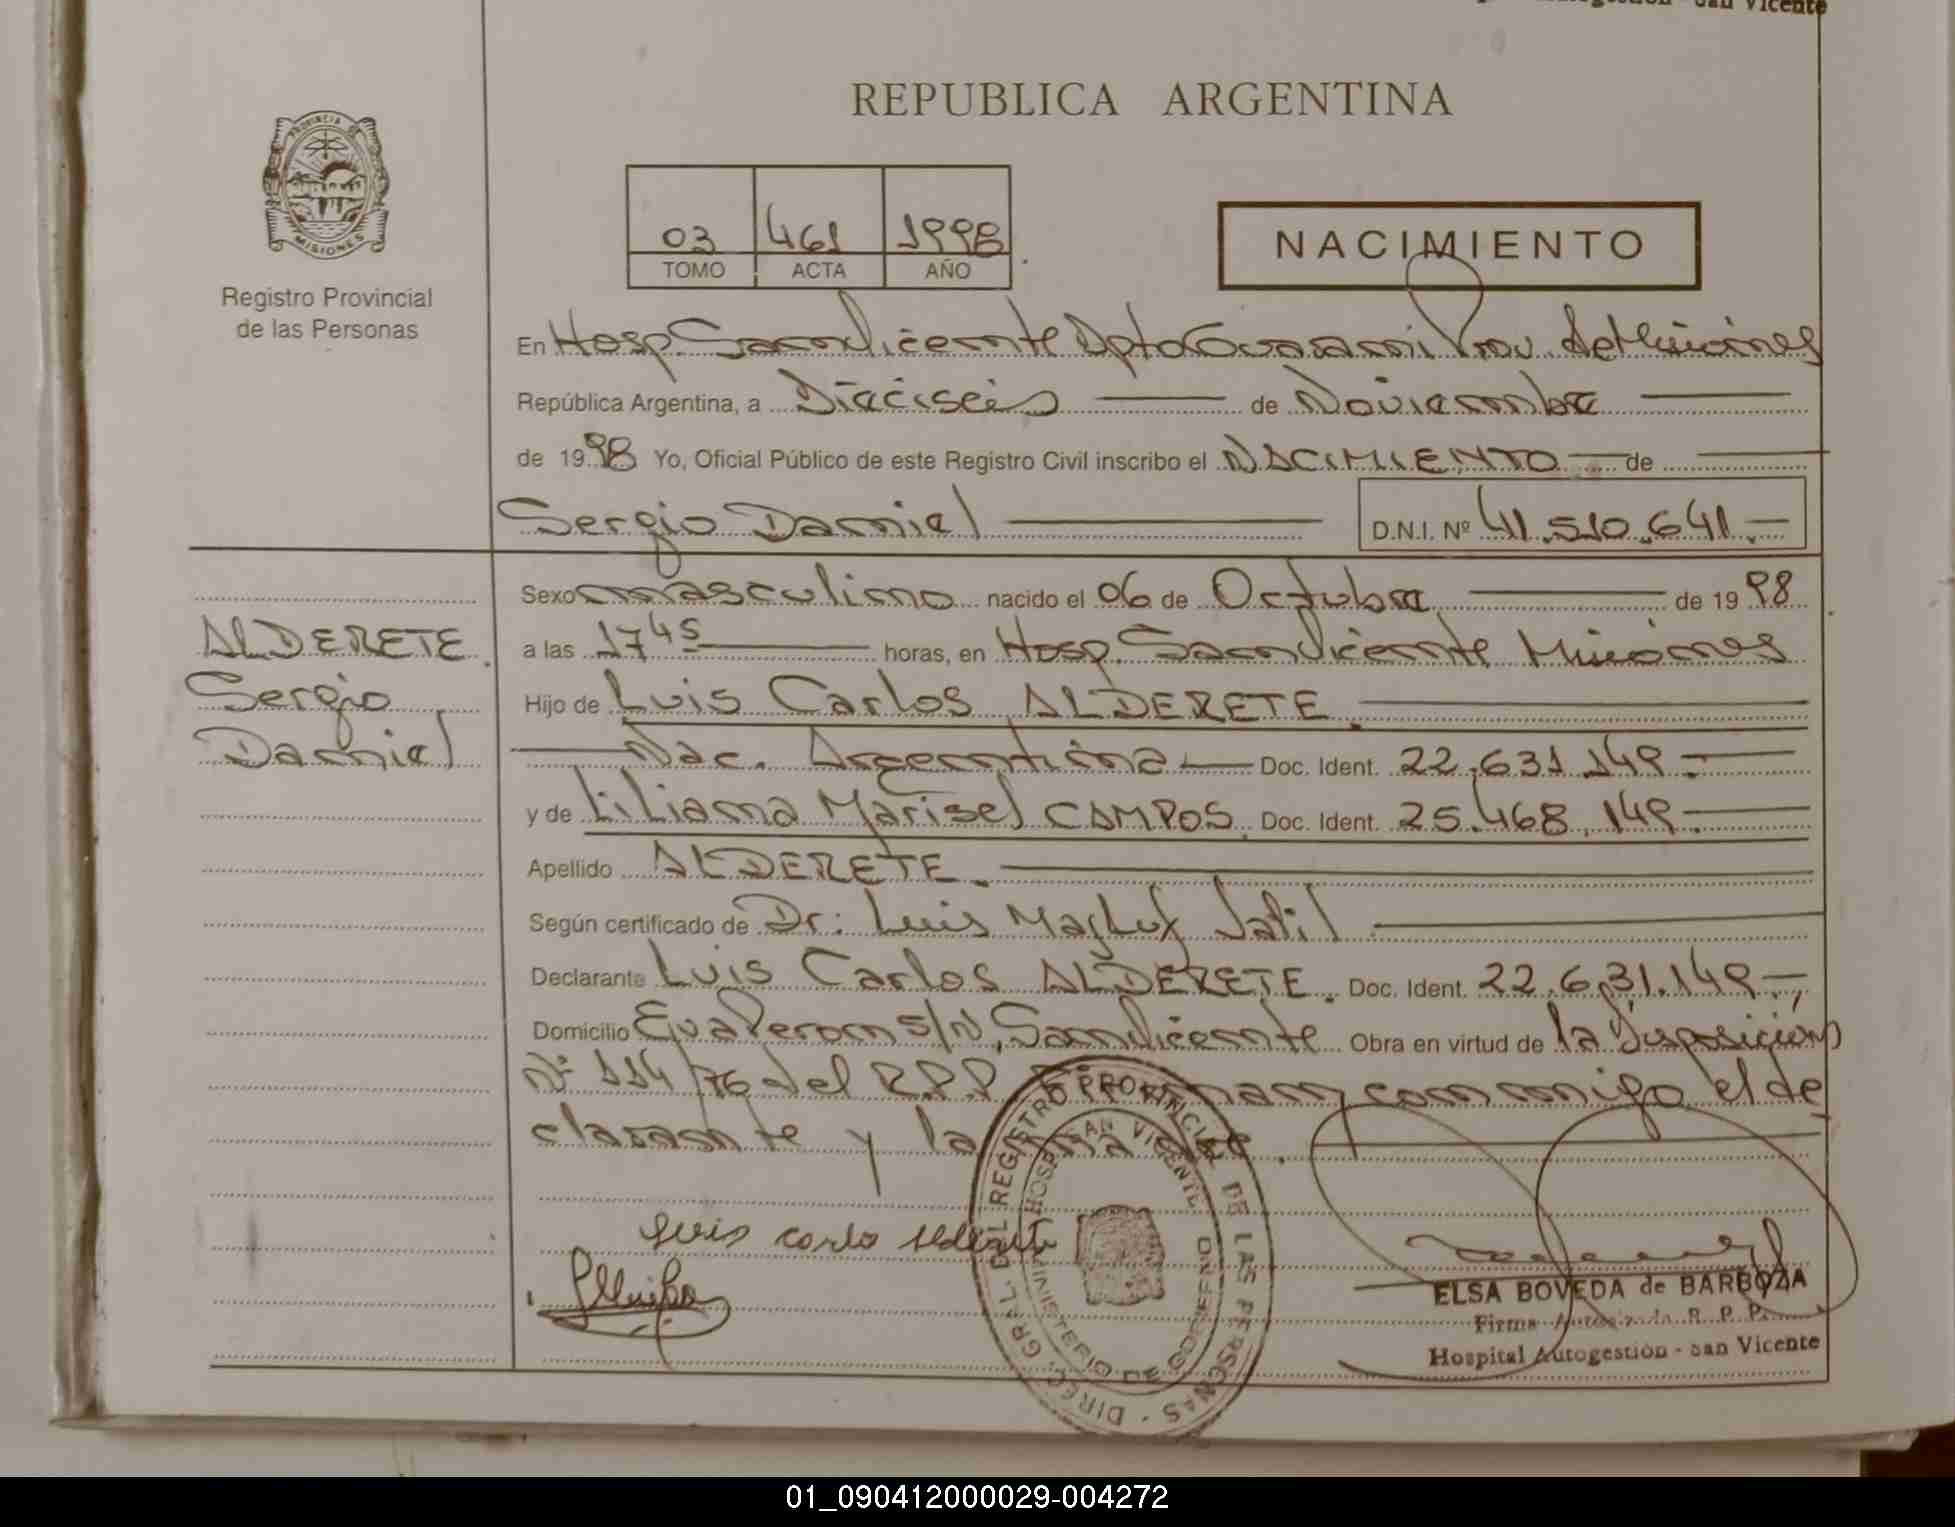 San Vicente
REPUBLICA ARGENTINA
PROVINCIA DE
MISIONES
Registro Provincial
de las Personas
03 461 1998
TOMO ACTA AÑO
NACIMIENTO
En Hosp. San Vicente Dpto Guarani Prov. de Misiones
República Argentina, a Dieciseis de Noviembre
de 1998 Yo, Oficial Público de este Registro Civil inscribo el NACIMIENTO de
Sergio Daniel D.N.I. Nº 41.510.641.-
ALDERETE
Sergio
Daniel
Sexo masculino nacido el 06 de Octubre de 1998
a las 17 45 horas, en Hosp. San Vicente Misiones
Hijo de Luis Carlos ALDERETE.
Nac. Argentina Doc. Ident. 22.631.149.-
y de Liliana Marisel CAMPOS. Doc. Ident. 25.468.149.-
Apellido ALDERETE.
Según certificado de Dr: Luis
Declarante Luis Carlos ALDERETE. Doc. Ident. 22.631.149.-
Domicilio Eva Peron s/N, San Vicente Obra en virtud de la disposición
Nº 114/76 del R.P.P. Firman conmigo el de
clarante y la madre.
Luis Carlo Alderete
DIREC. GRAL. DEL REGISTRO PROVINCIAL DE LAS PERSONAS
HOSP. SAN VICENTE
MINISTERIO DE GOBIERNO
ELSA BOVEDA de BARBOZA
Firma Autorizada R. P. P.
Hospital Autogestión - San Vicente
01_090412000029-004272